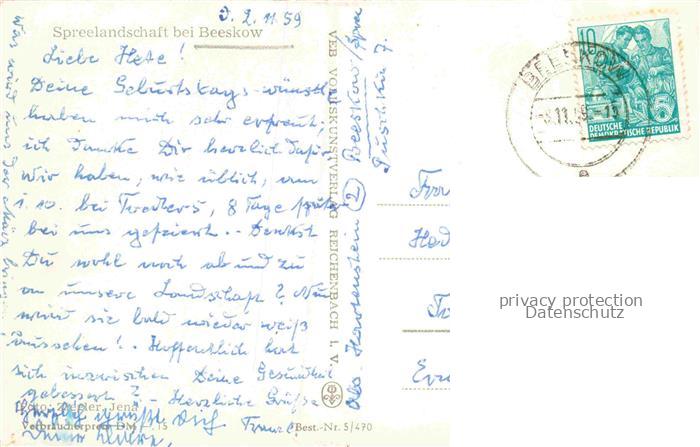 D. 2. 11. 59
Spreelandschaft bei Beeskow
Liebe Hete!
Deine Geburtstagswünsche
haben mich sehr erfreut,
ich danke Dir herzlich dafür.
Wir haben, wie üblich, am
1. 10. bei 8 Tage später
bei uns gefeiert. - Denkst
Du wohl noch ab und zu
an unsere Landschaft? Nun
wird sie bald wieder weiß
aussehen! - Hoffentlich hat
sich inzwischen Deine Gesundheit
gebessert? - Herzliche Grüße
Foto: Zielpler, Jena
grüßt Dich
Verbraucherpreis DM -.15
Best.-Nr. 5/470
Was wird uns das neue
VEB VOLKSKUNSTVERLAG REICHENBACH I. V.
Abs. (2) Beeskow/Spree
Puschkin 7.
BEESKOW
11.59-15
10
5
DEUTSCHE
DEMOKRATISCHE REPUBLIK
privacy protection
Datenschutz